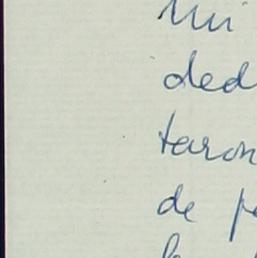 Mi
ded
taron
de pe